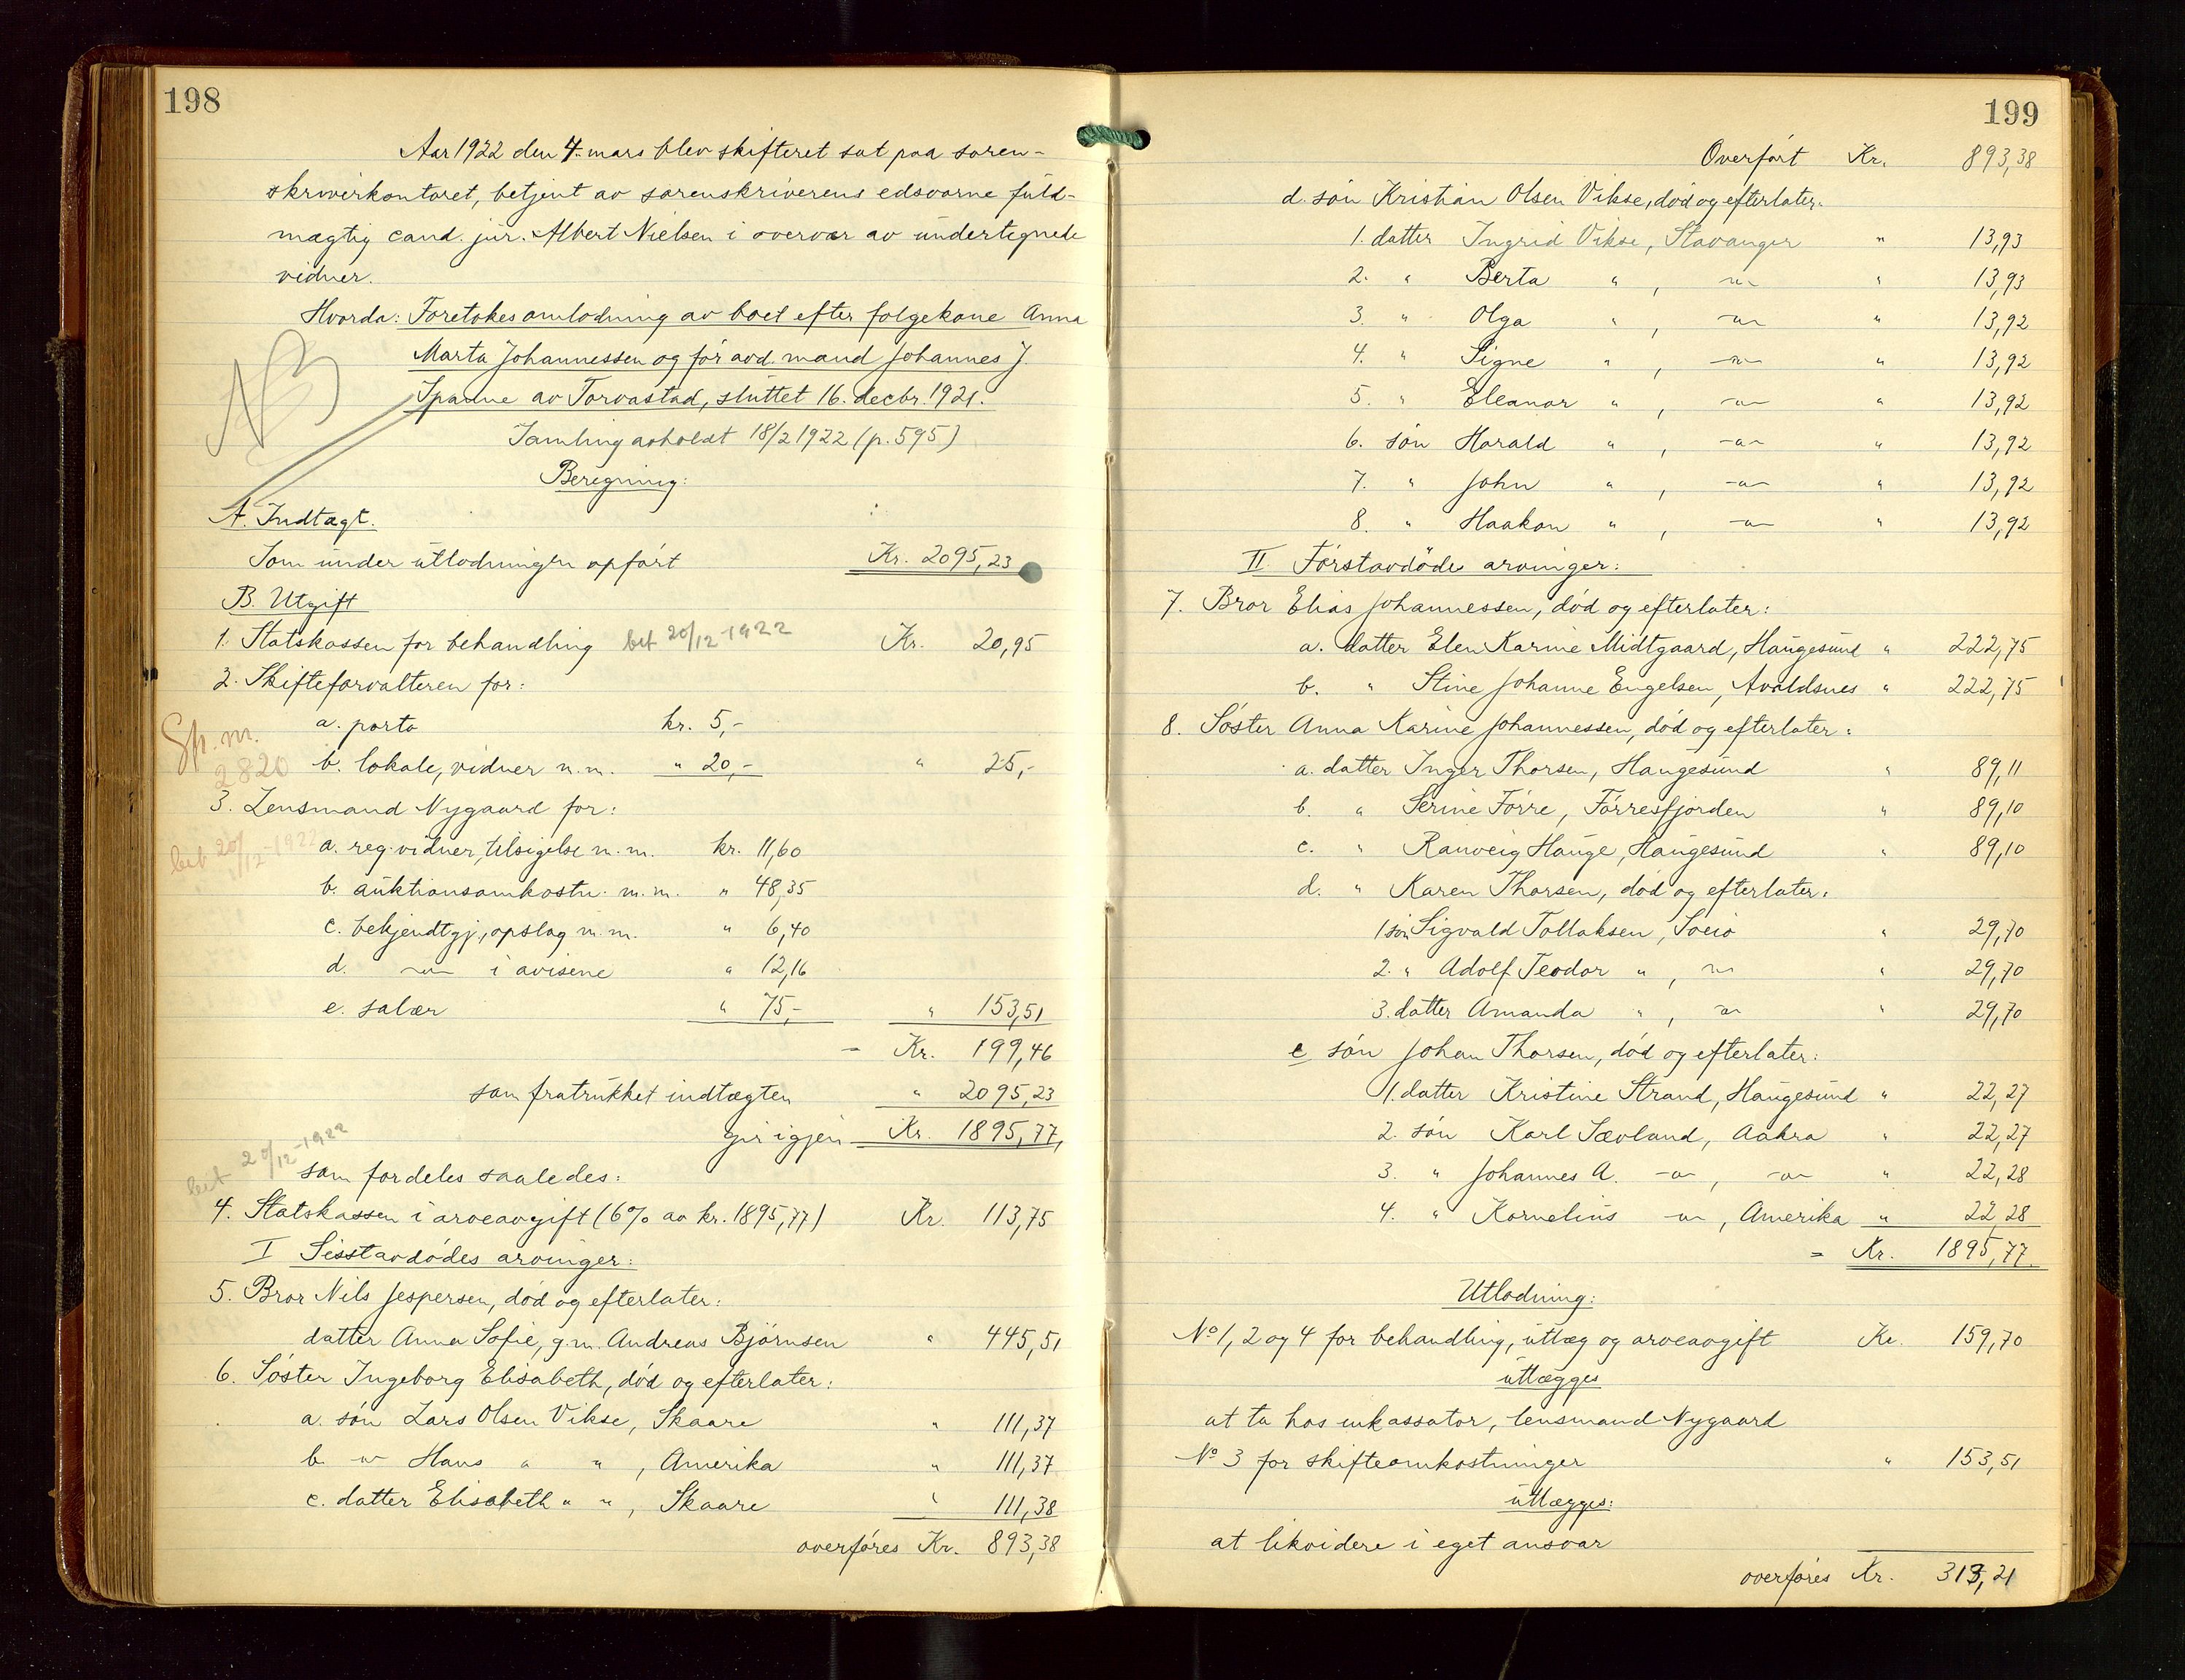 198
Aar 1922 den 4. mars blev skifteret sat paa soren-
skriverkontoret, betjent av sorenskriverens edsvorne fuld-
mægtig cand. jur. Albert Nielsen i overvær av undertegnede
vidner.
Hvorda: Foretokes omlodning av boet efter følgekone Anna
Marta Johannessen og før avd. mand Johannes J.
NB
Spanne av Torvastad, sluttet 16. decbr. 1921.
Samling avholdt 18/2 1922 (p. 595)
Beregning:
A. Indtægt.
Som under utlodningen opført Kr. 2095,23
B. Utgift
1. Statskassen for behandling bet 20/12-1922 Kr. 20,95
2. Skifteforvalteren for:
a. porto kr. 5,-
Gp. m.
2820
b. lokale, vidner m.m. " 20,- " 25,-
3. Lensmand Nygaard for:
bet 20/12-1922
a. reg. vidner, tilsigelse m.m. kr. 11,60
b. auktionsomkostn. m.m. " 48,35
c. bekjendtgj., opslag m.m. " 6,40
d. -"- i avisene " 12,16
e. salær " 75,- " 153,51
= Kr. 199,46
som fratrukket indtægten " 2095,23
gir igjen Kr. 1895,77,
bet 20/12-1922
som fordeles saaledes:
4. Statskassen i arveavgift (6% av kr. 1895,77) Kr. 113,75
I Sisstavdødes arvinger:
5. Bror Nils Jespersen, død og efterlater:
datter Anna Sofie, g.m. Andreas Bjørnsen " 445,51
6. Søster Ingeborg Elisabeth, død og efterlater:
a. søn Lars Olsen Vikse, Skaare " 111,37
b. -"- Hans " " , Amerika " 111,37
c. datter Elisabeth " " , Skaare " 111,38
overføres Kr. 893,38
199
Overført Kr. 893,38
d. søn Kristian Olsen Vikse, død og efterlater:
1. datter Ingrid Vikse, Stavanger " 13,93
2. " Berta " , -"- " 13,93
3. " Olga " , -"- " 13,92
4. " Signe " , -"- " 13,92
5. " Eleanor " , -"- " 13,92
6. søn Harald " , -"- " 13,92
7. " John " , -"- " 13,92
8. " Haakon " , -"- " 13,92
II. Førstavdøde arvinger:
7. Bror Elias Johannessen, død og efterlater:
a. datter Elen Karine Midtgaard, Haugesund " 222,75
b. " Stine Johanne Engelsen, Avaldsnes " 222,75
8. Søster Anna Karine Johannessen, død og efterlater:
a. datter Inger Thorsen, Haugesund " 89,11
b. " Serine Førre, Førresfjorden " 89,10
c. " Ranveig Hauge, Haugesund " 89,10
d. " Karen Thorsen, død og efterlater:
1 søn Sigvald Tollaksen, " 29,70
2. " Adolf Teodor " , -"- " 29,70
3. datter Amanda " , -"- " 29,70
e søn Johan Thorsen, død og efterlater:
1. datter Kristine Strand, Haugesund " 22,27
2. søn Karl Sævland, Aakra " 22,27
3. " Johannes A. -"-, -"- " 22,28
4. " Kornelius -"-, Amerika " 22,28
= Kr. 1895,77.
Utlodning:
No 1, 2 og 4 for behandling, utlæg og arveavgift Kr. 159,70
utlægges
at ta hos inkassator, lensmand Nygaard
No 3 for skifteomkostninger " 153,51
utlægges:
at likvidere i eget ansvar
overføres Kr. 313,21